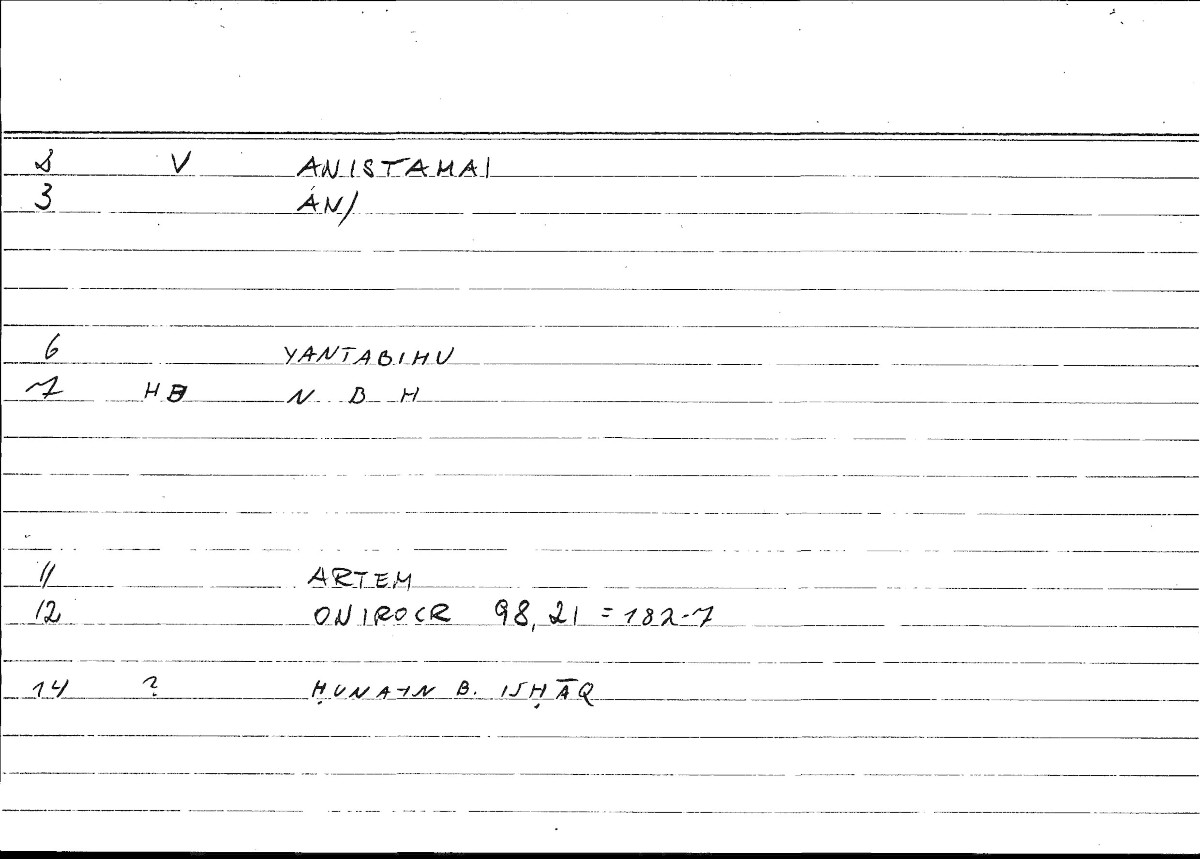 2 V ANISTAMAI
3 ÁN/
6 YANTABIHU
7 HB N B H
11 ARTEM
12 ONIROCR 98, 21 = 182-7
14 ? ḤUNAIN B. ISḤĀQ